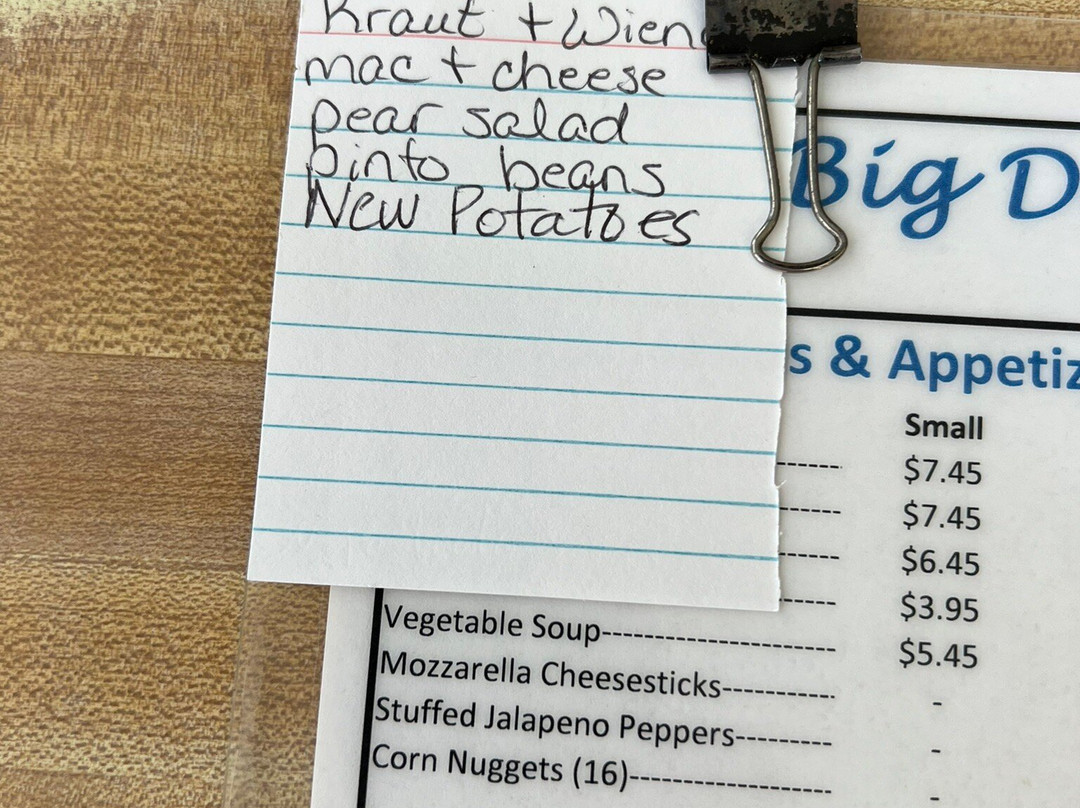 Kraut + Wien
mac + cheese
pear salad
pinto beans
New Potatoes
Big D
s & Appetiz
Small
------- $7.45
------- $7.45
------- $6.45
------- $3.95
Vegetable Soup----------------------- $5.45
Mozzarella Cheesesticks----------- -
Stuffed Jalapeno Peppers---------- -
Corn Nuggets (16)-------------------- -